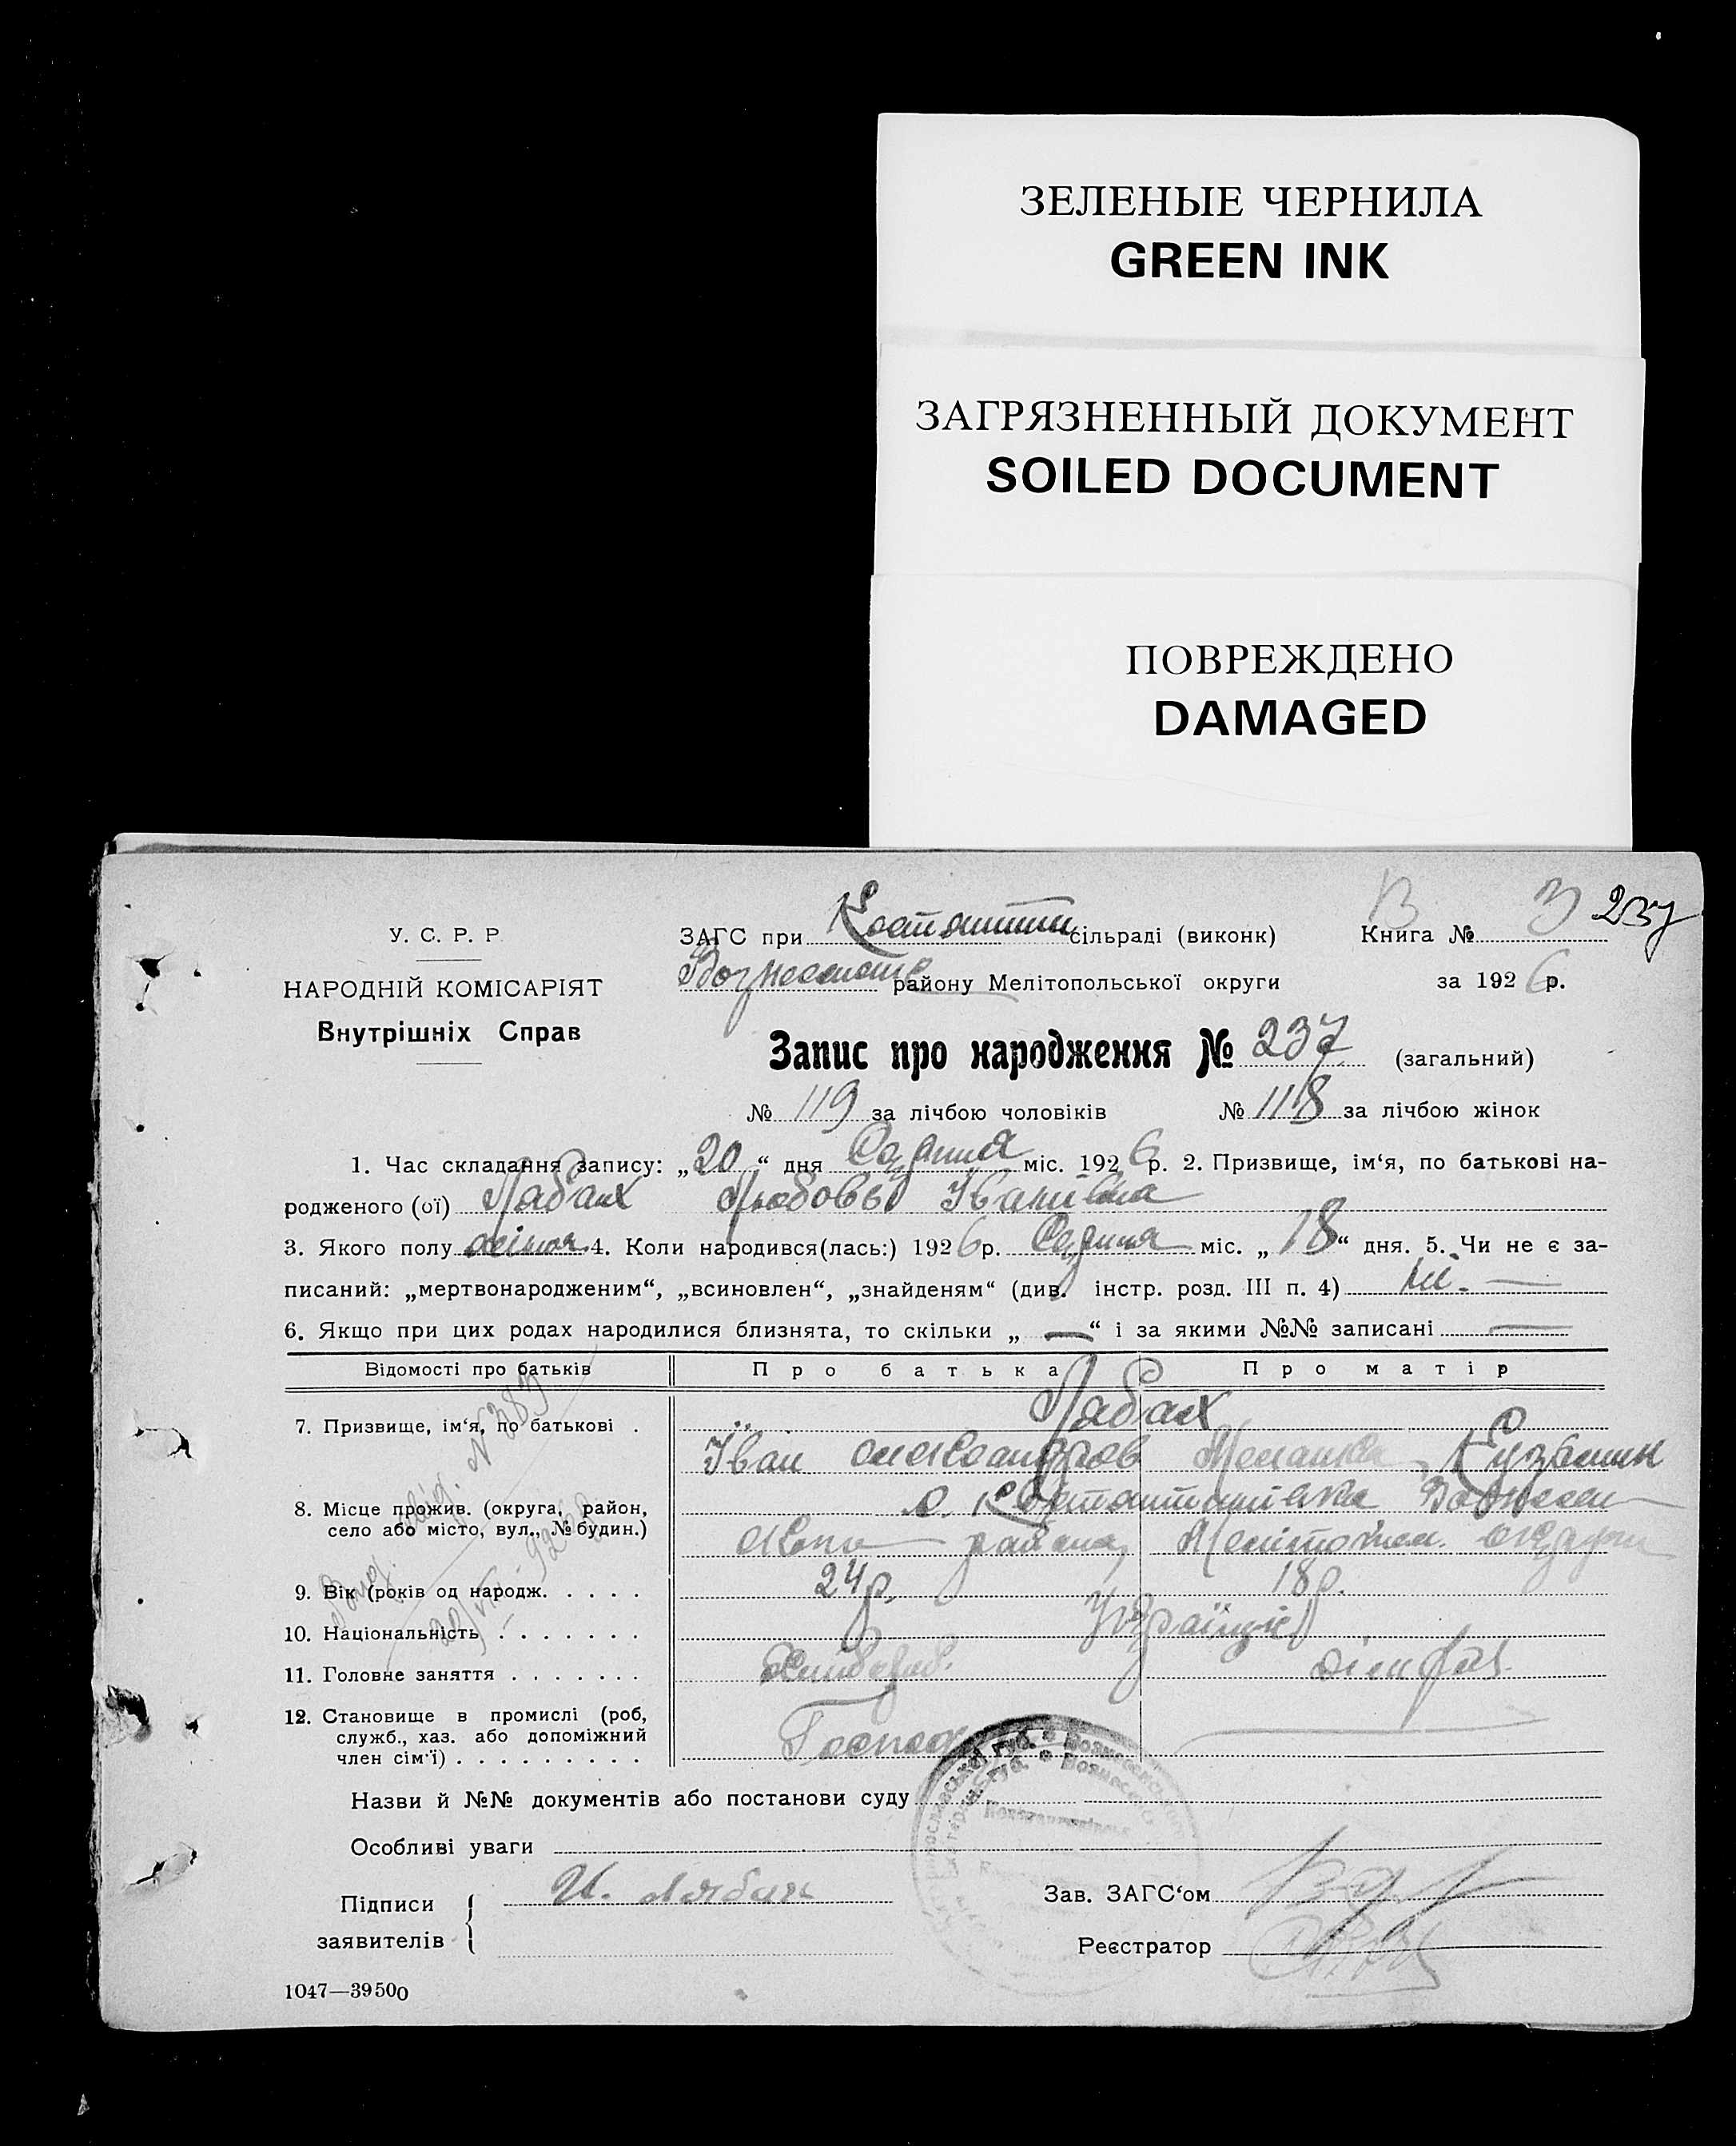 ЗЕЛЕНЫЕ ЧЕРНИЛА
GREEN INK
ЗАГРЯЗНЕННЫЙ ДОКУМЕНТ
SOILED DOCUMENT
ПОВРЕЖДЕНО
DAMAGED
В 3 237
У. С. Р. Р.
НАРОДНІЙ КОМІСАРІЯТ
Внутрішніх Справ
ЗАГС при сільраді (виконк) Книга №
району Мелітопольської округи за 1926 р.
Запис про народження № 237 (загальний)
№ 119 за лічбою чоловіків № 118 за лічбою жінок
1. Час складання запису: „20“ дня Серпня міс. 1926 р. 2. Призвище, ім‘я, по батькові на-
родженого (ої) Лабах Любовь Іванівна
3. Якого полу жіноч. 4. Коли народився(лась:) 1926 р. Серпня міс. „18“ дня. 5. Чи не є за-
писаний: „мертвонародженим“, „всиновлен“, „знайденям“ (див. інстр. розд. III п. 4) ні. —
6. Якщо при цих родах народилися близнята, то скільки „ — “ і за якими №№ записані —
Відомості про батьків Про батька Про матір
Лабах
7. Призвище, ім‘я, по батькові .
Іван Меланка
8. Місце прожив. (округа, район,
село або місто, вул., № будин.)
с. Костянтинівка Вознесен-
району, Мелітопол. округи
9. Вік (років од народж. . . . . 24 р. 18 р.
10. Національність . . . . . . . Українці
11. Головне заняття . . . . . . . Хлібороб.
12. Становище в промислі (роб,
служб., хаз. або допоміжний
член сім‘ї) . . . . . . . . . Господ
Назви й №№ документів або постанови суду
Особливі уваги
Підписи
заявителів
И. Лябах
Зав. ЗАГС‘ом
Реєстратор
1047—39500